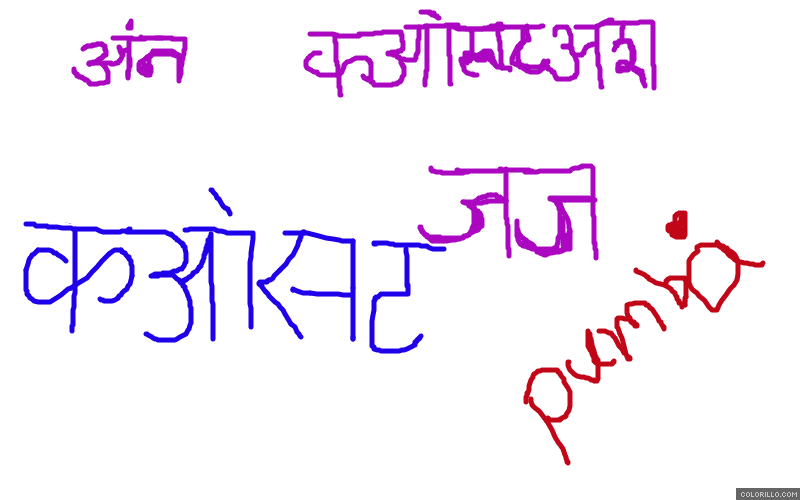 अंन कओसटअश
जज
कओसट
pumba
COLORILLO.COM